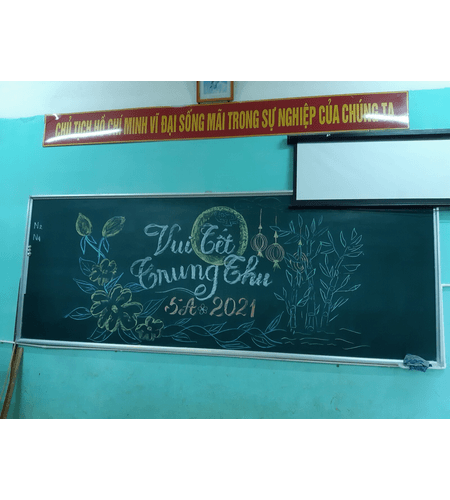 CHỦ TỊCH HỒ CHÍ MINH VĨ ĐẠI SỐNG MÃI TRONG SỰ NGHIỆP CỦA CHÚNG TA
Vui Tết
Trung Thu
5A 2021